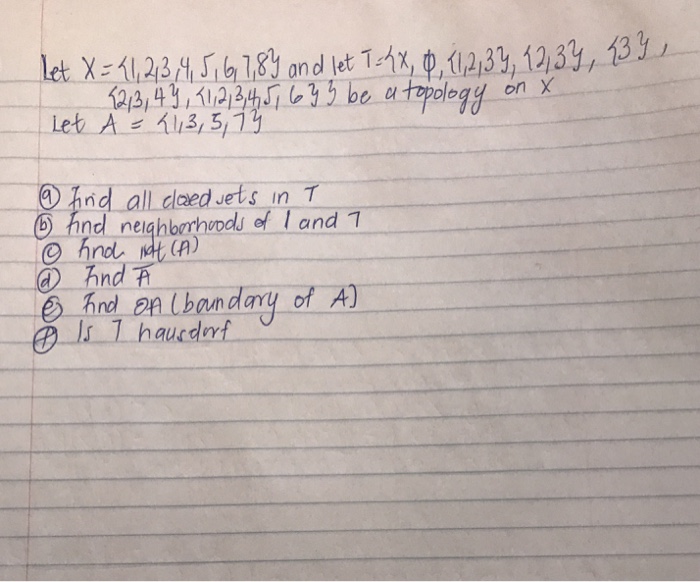 Let X = {1,2,3,4,5,6,7,8} and let T={X, φ, {1,2,3}, {2,3}, {3},
{2,3,4}, {1,2,3,4,5,6}} be a topology on X
Let A = {1,3,5,7}
(a) Find all closed sets in T
(b) Find neighborhoods of 1 and 7
(c) Find int(A)
(d) Find A̅
(e) Find ∂A (boundary of A)
(f) Is T hausdorf